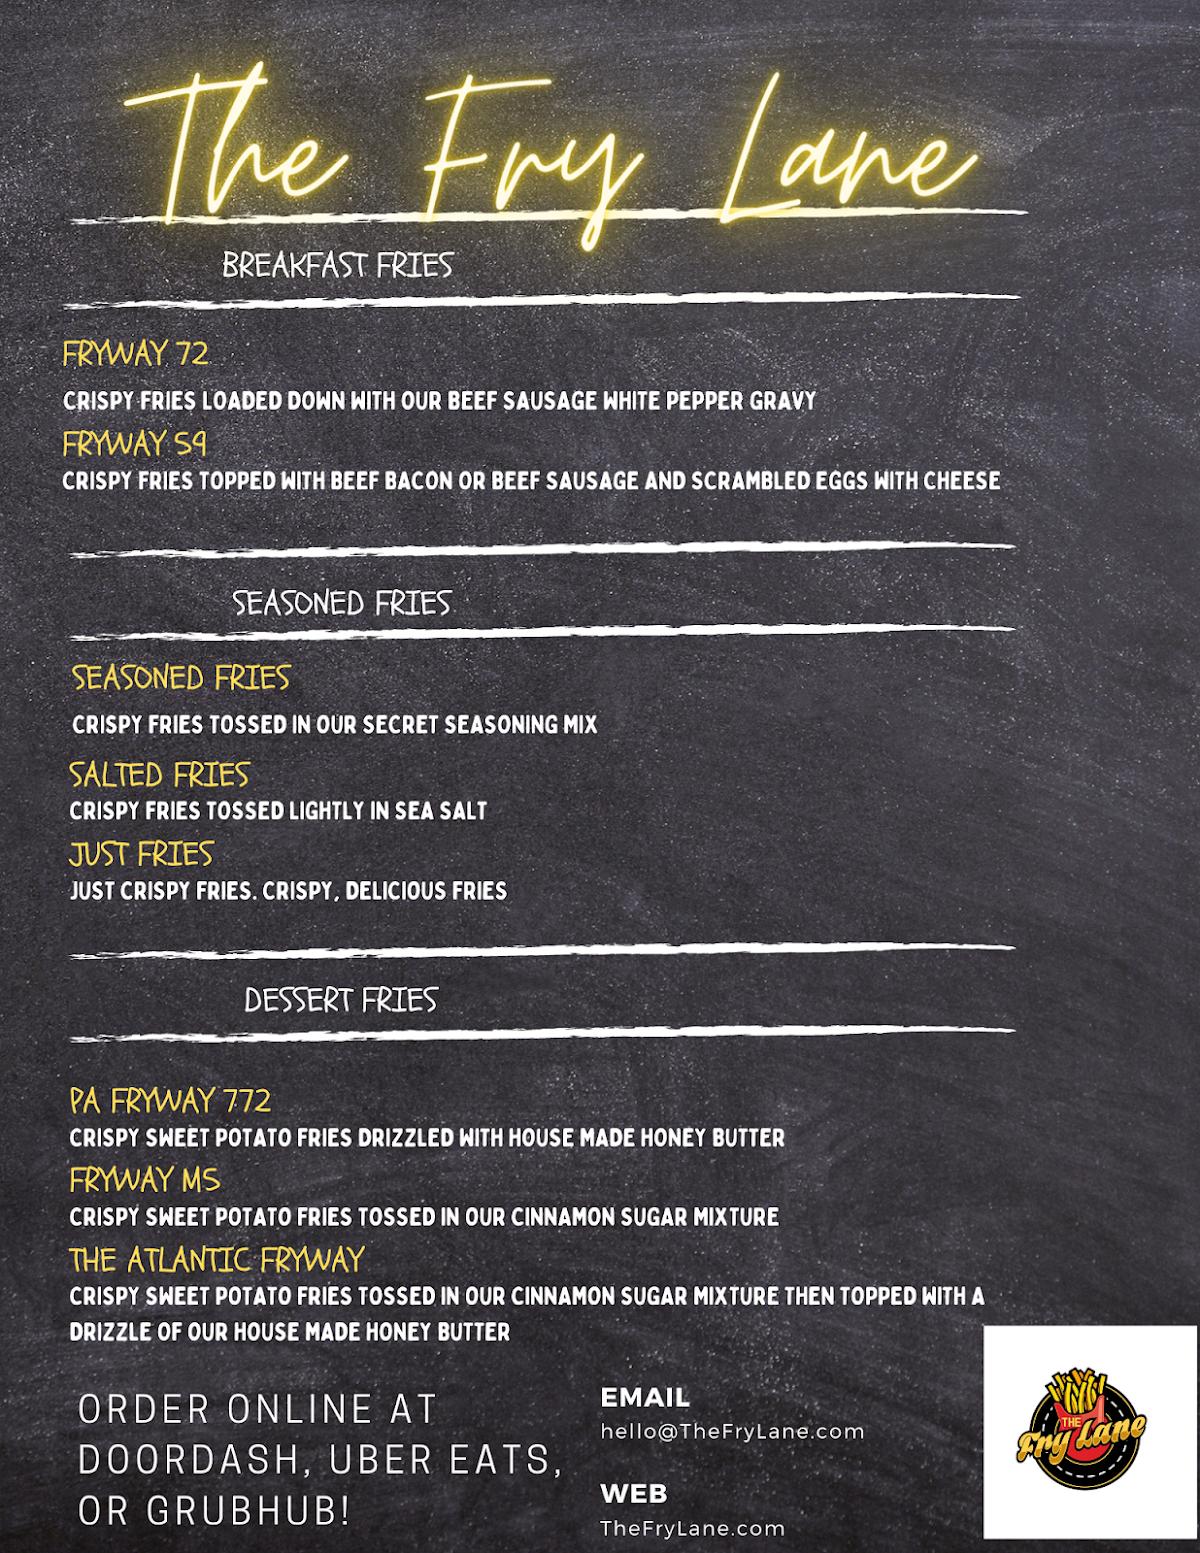 The Fry Lane
BREAKFAST FRIES
FRYWAY 72
CRISPY FRIES LOADED DOWN WITH OUR BEEF SAUSAGE WHITE PEPPER GRAVY
FRYWAY 59
CRISPY FRIES TOPPED WITH BEEF BACON OR BEEF SAUSAGE AND SCRAMBLED EGGS WITH CHEESE
SEASONED FRIES
SEASONED FRIES
CRISPY FRIES TOSSED IN OUR SECRET SEASONING MIX
SALTED FRIES
CRISPY FRIES TOSSED LIGHTLY IN SEA SALT
JUST FRIES
JUST CRISPY FRIES. CRISPY, DELICIOUS FRIES
DESSERT FRIES
PA FRYWAY 772
CRISPY SWEET POTATO FRIES DRIZZLED WITH HOUSE MADE HONEY BUTTER
FRYWAY M5
CRISPY SWEET POTATO FRIES TOSSED IN OUR CINNAMON SUGAR MIXTURE
THE ATLANTIC FRYWAY
CRISPY SWEET POTATO FRIES TOSSED IN OUR CINNAMON SUGAR MIXTURE THEN TOPPED WITH A
DRIZZLE OF OUR HOUSE MADE HONEY BUTTER
ORDER ONLINE AT
DOORDASH, UBER EATS,
OR GRUBHUB!
EMAIL
hello@TheFryLane.com
WEB
TheFryLane.com
THE
Fry Lane